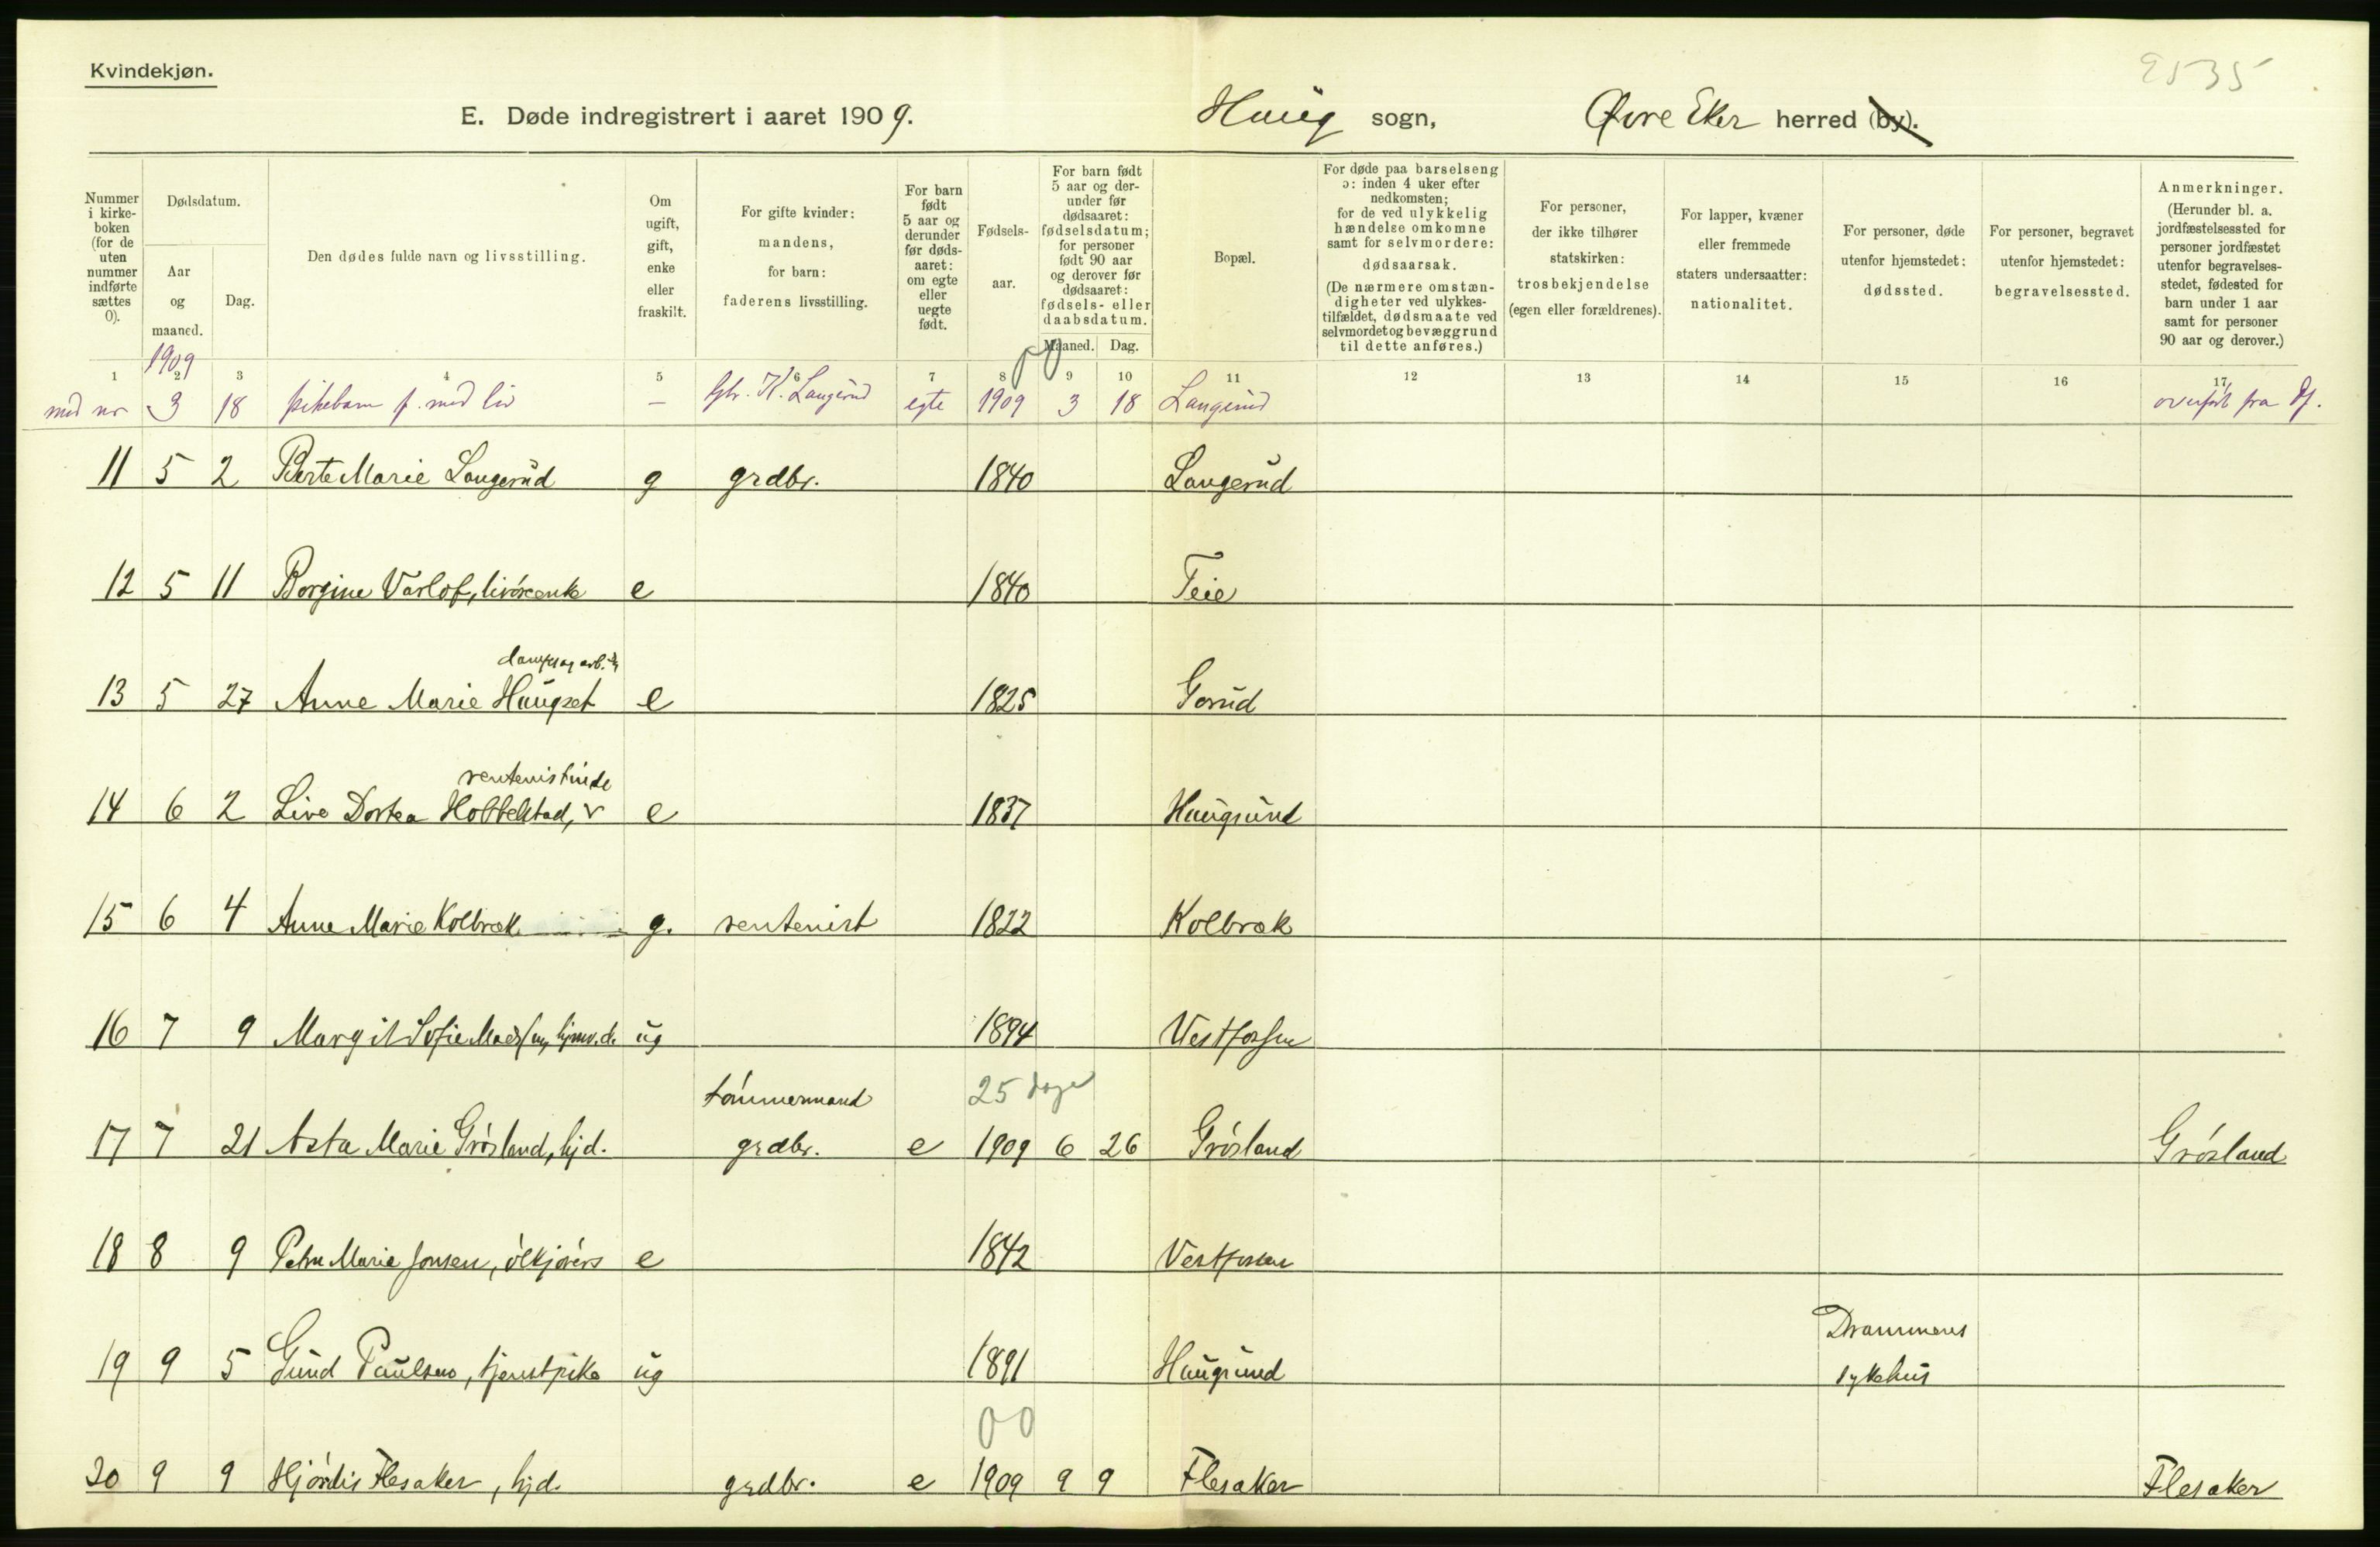 Kvindekjøn.
E. Døde indregistrert i aaret 1909.
Haug sogn, Øvre Eker herred (by).
Nummer i kirke-boken (for de uten nummer indførte sættes 0).
Dødsdatum.
Aar og maaned.
Dag.
Den dødes fulde navn og livsstilling.
Om ugift, gift, enke eller fraskilt.
For gifte kvinder: mandens, for barn: faderens livsstilling.
For barn født 5 aar og derunder før døds-aaret: om egte eller uegte født.
Fødsels-aar.
For barn født 5 aar og der-under før dødsaaret: fødselsdatum; for personer født 90 aar og derover før dødsaaret: fødsels- eller daabsdatum.
Maaned. Dag.
Bopæl.
For døde paa barselseng ɔ: inden 4 uker efter nedkomsten; for de ved ulykkelig hændelse omkomne samt for selvmordere: dødsaarsak. (De nærmere omstæn-digheter ved ulykkes-tilfældet, dødsmaate ved selvmordet og bevæggrund til dette anføres.)
For personer, der ikke tilhører statskirken: trosbekjendelse (egen eller forældrenes).
For lapper, kvæner eller fremmede staters undersaatter: nationalitet.
For personer, døde utenfor hjemstedet: dødssted.
For personer, begravet utenfor hjemstedet: begravelsessted.
Anmerkninger. (Herunder bl. a. jordfæstelsessted for personer jordfæstet utenfor begravelses-stedet, fødested for barn under 1 aar samt for personer 90 aar og derover.)
1909
1 2 3 4 5 6 7 8 9 10 11 12 13 14 15 16 17
00
nr 3 18 pikebarn f. med liv — gbr. K. Langerud egte 1909 3 18 Langerud overført fra Df.
11 5 2 Berte Marie Langerud g grdbr. 1840 Langerud
12 5 11 Borgine Varlo e 1840 Teie
13 5 27 Anne Marie Haugset e 1825 Gorud
rentenistinde
14 6 2 Live Dortea Hobbelstad, e 1837 Haugsund
15 6 4 Anne Marie Kolbræk g. rentenist 1822 Kolbræk
16 7 9 Margit Sofie Madsen, hjmv. d. ug 1894 Vestfossen
tømmermand 25 dage
17 7 21 Asta Marie Grøsland, hjd. grdbr. e 1909 6 26 Grøsland Grøsland
18 8 9 Petra Marie Jonsen, ølkjørers e 1842 Vestfossen
Drammens
19 9 5 Gund Paulsen, tjenstpike ug 1891 Haugsund sykehus
00
20 9 9 Hjørdis Flesaker, hjd. grdbr. e 1909 9 9 Flesaker Flesaker